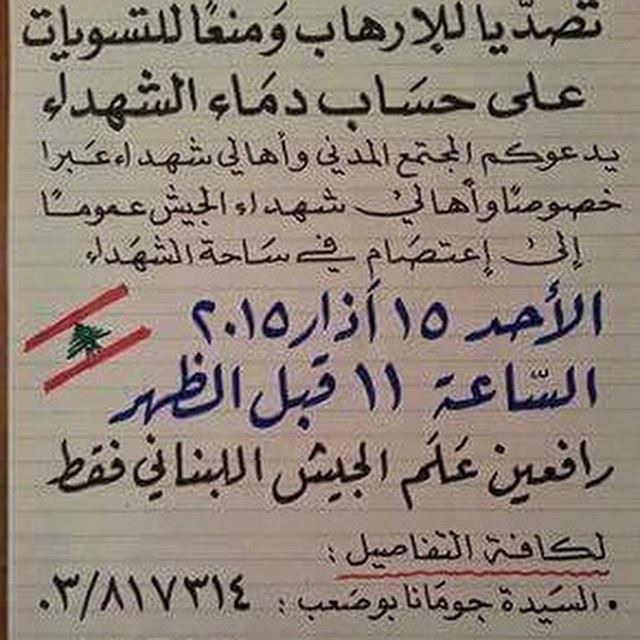 تصدّيا للإرهاب وَمنعًا للتسويات
على حسَاب دمَاء الشهداء
يدعوكم المجتمع المدني وأهالي شهداء عَبرا
خصوصًا وأهالي شهداء الجيش عمومًا
إلى إعتصَام في سَاحة الشهَداء
الأحد ١٥ أذار ٢٠١٥
السّاعة ١١ قبل الظهر
رافعين عَلَم الجيش اللبناني فقط
لكافة التفاصيل :
• السيدة جومَانا بوصَعب : ٠٣/٨١٧٣١٤